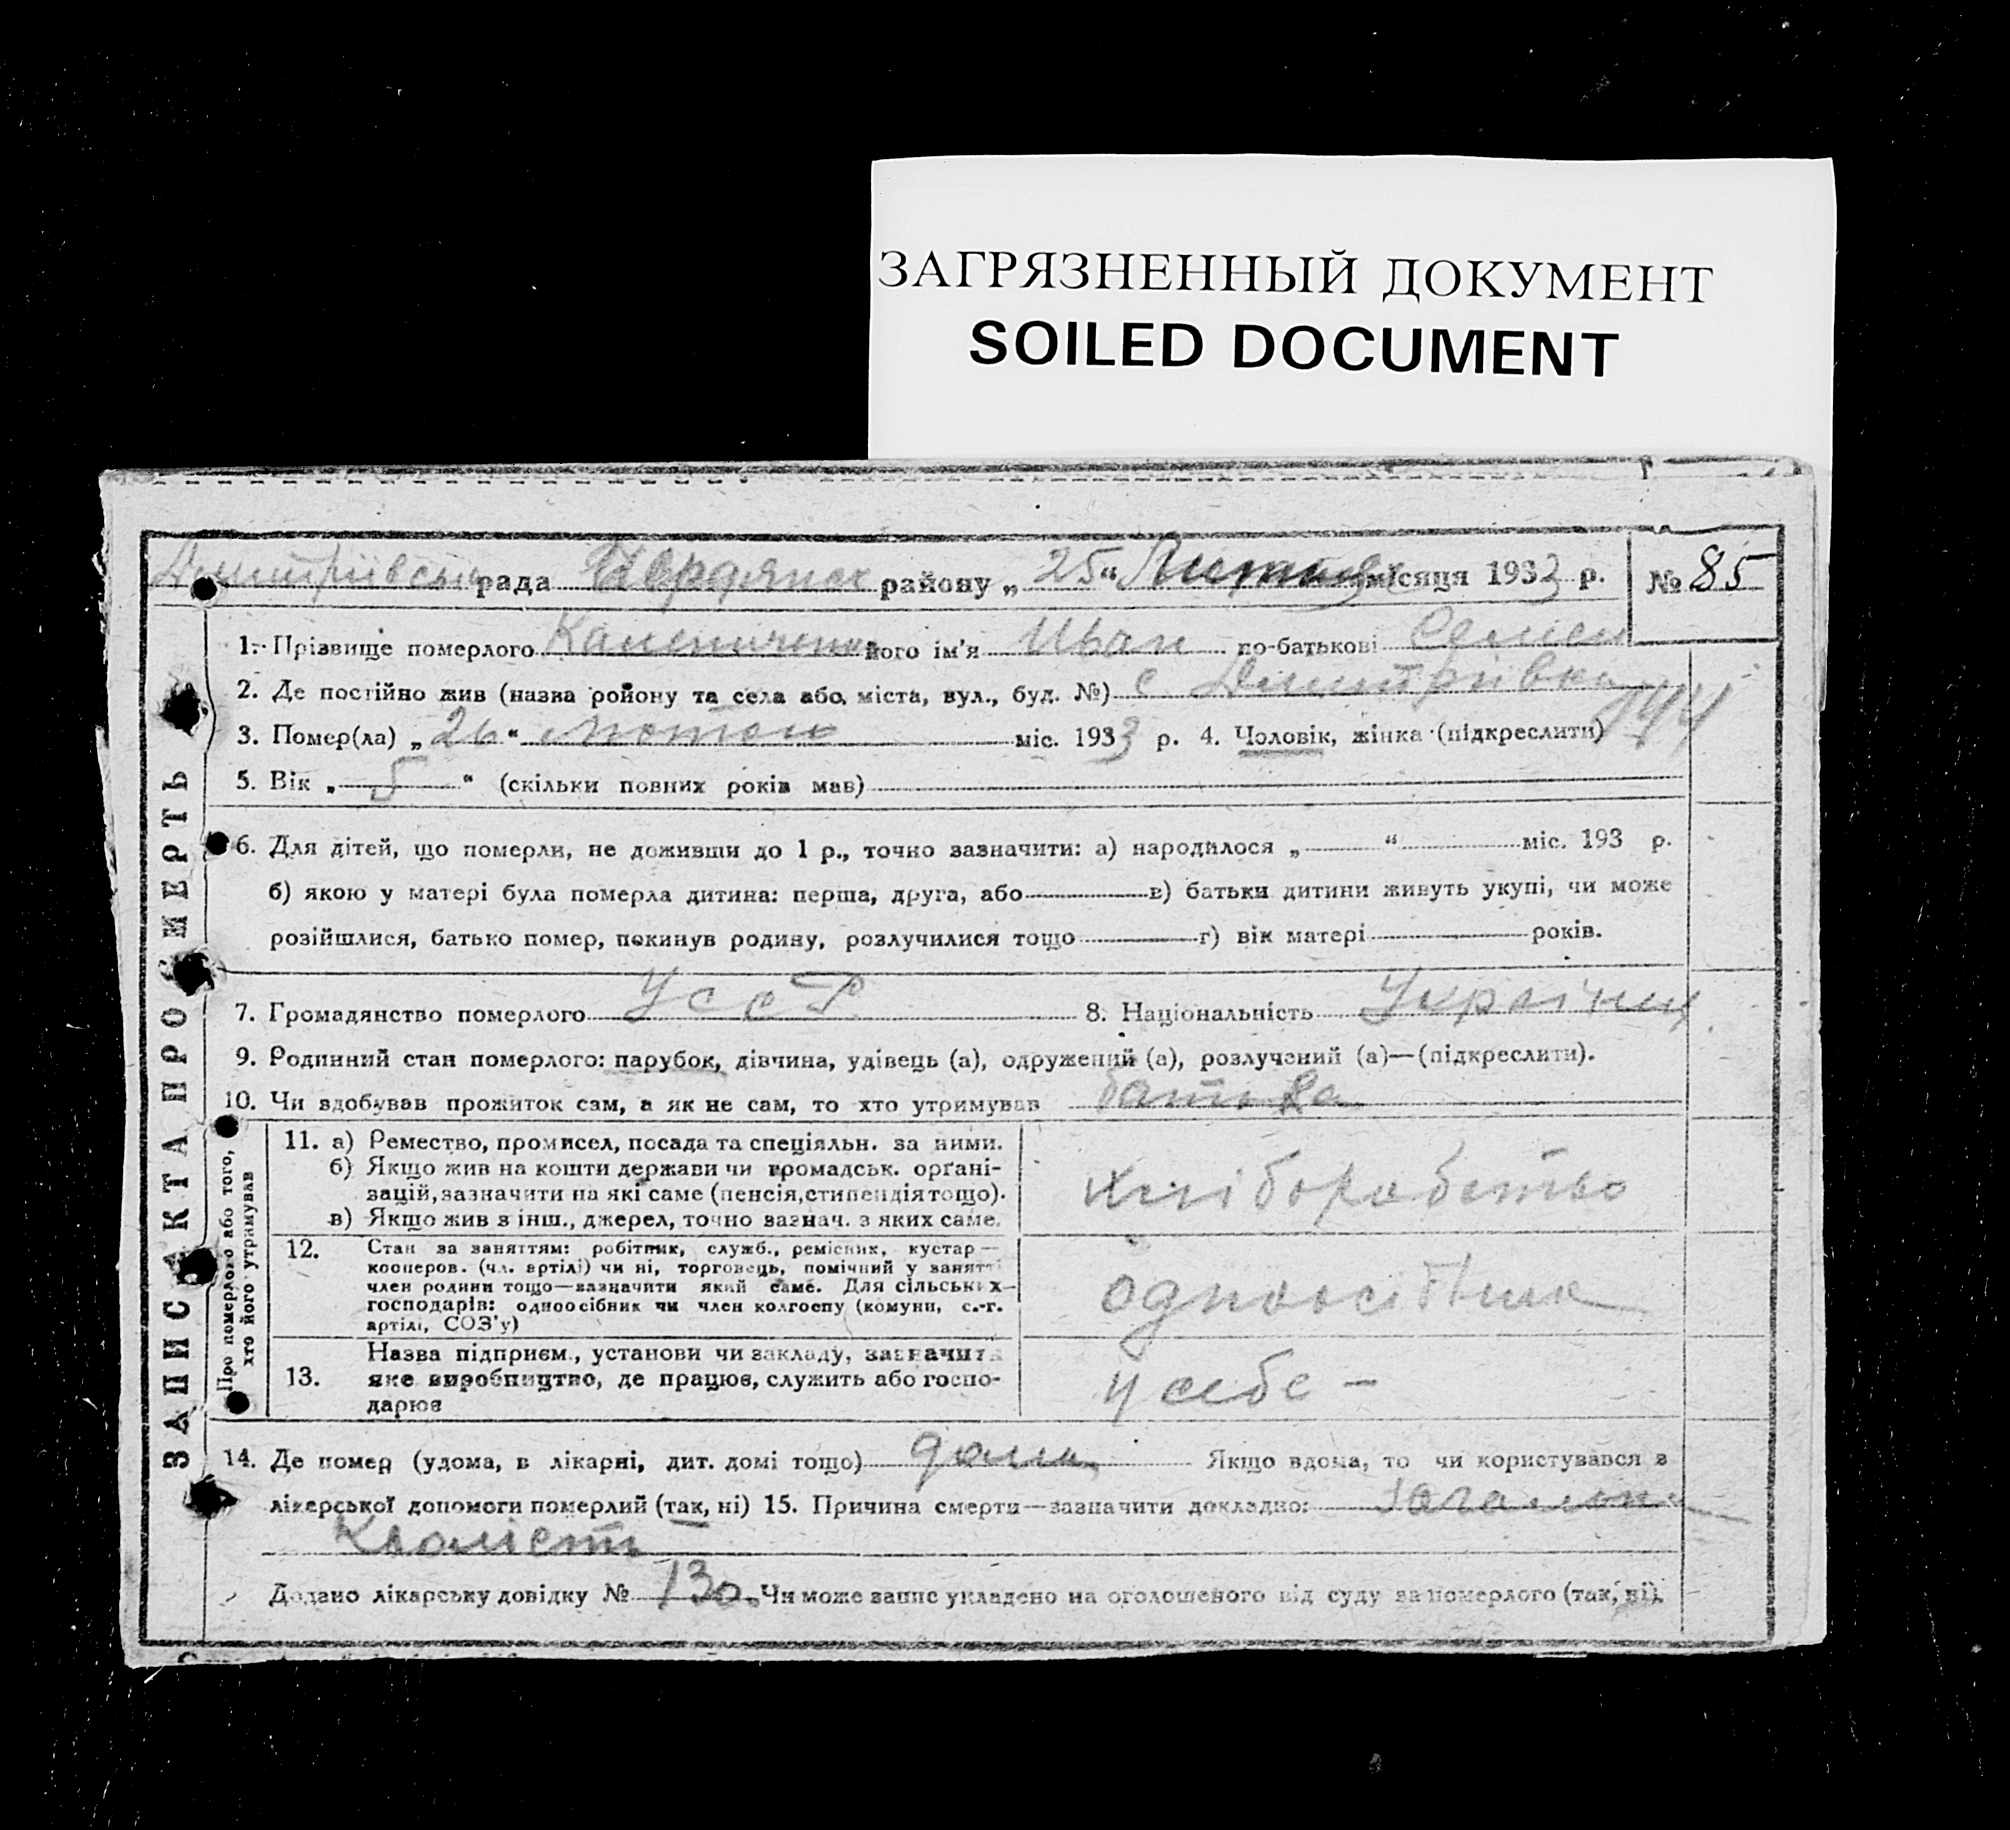 ЗАГРЯЗНЕННЫЙ ДОКУМЕНТ
SOILED DOCUMENT
рада району „ 25 “ місяця 1933 р. № 85
1. Прізвище померлого його ім'я Иван по-батькові Семен
2. Де постійно жив (назва ройону та села або, міста, вул., буд. №) с. Дмитрівка
144
3. Помер(ла) „ “ лютого міс. 1933 р. 4. Чоловік, жінка (підкреслити)
5. Вік „ 5 “ (скільки повних років мав)
6. Для дітей, що померли, не доживши до 1 р., точно зазначити: а) народилося „ “ міс. 193 р.
б) якою у матері була померла дитина: перша, друга, або в) батьки дитини живуть укупі, чи може
розійшлися, батько помер, покинув родину, розлучилися тощо г) вік матері років.
7. Громадянство померлого УССР 8. Національність Українец
9. Родинний стан померлого: парубок, дівчина, удівець (а), одружений (а), розлучений (а)—(підкреслити).
10. Чи здобував прожиток сам, а як не сам, то хто утримував батька
ЗАПИС АКТА ПРО СМЕРТЬ
Про померлого або того,
хто його утримував
11. а) Ремество, промисел, посада та спеціяльн. за ними.
б) Якщо жив на кошти держави чи громадськ. орґані-
зацій, зазначити на які саме (пенсія, стипендія тощо).
в) Якщо жив з інш., джерел, точно зазнач. з яких саме.
хліборобство
12. Стан за заняттям: робітник, служб., ремісник, кустар—
кооперов. (чл. артілі) чи ні, торговець, помічний у занятті
член родини тощо—зазначити який саме. Для сільських—
господарів: одноосібник чи член колгоспу (комуни, с.-г.
артілі, СОЗ'у)
одноосібник
13. Назва підприєм., установи чи закладу, зазначить
яке виробництво, де працює, служить або госпо-
дарює
у себе —
14. Де помер (удома, в лікарні, дит. домі тощо) дома Якщо вдома, то чи користувався з
лікарської допомоги померлий (так, ні) 15. Причина смерти—зазначити докладно:
Додано лікарську довідку № 130. Чи може запис укладено на оголошеного від суду за померлого (так, ні).